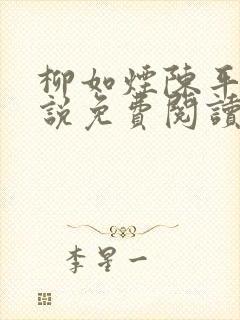 柳如煙陳平
說免費閱讀
李星一